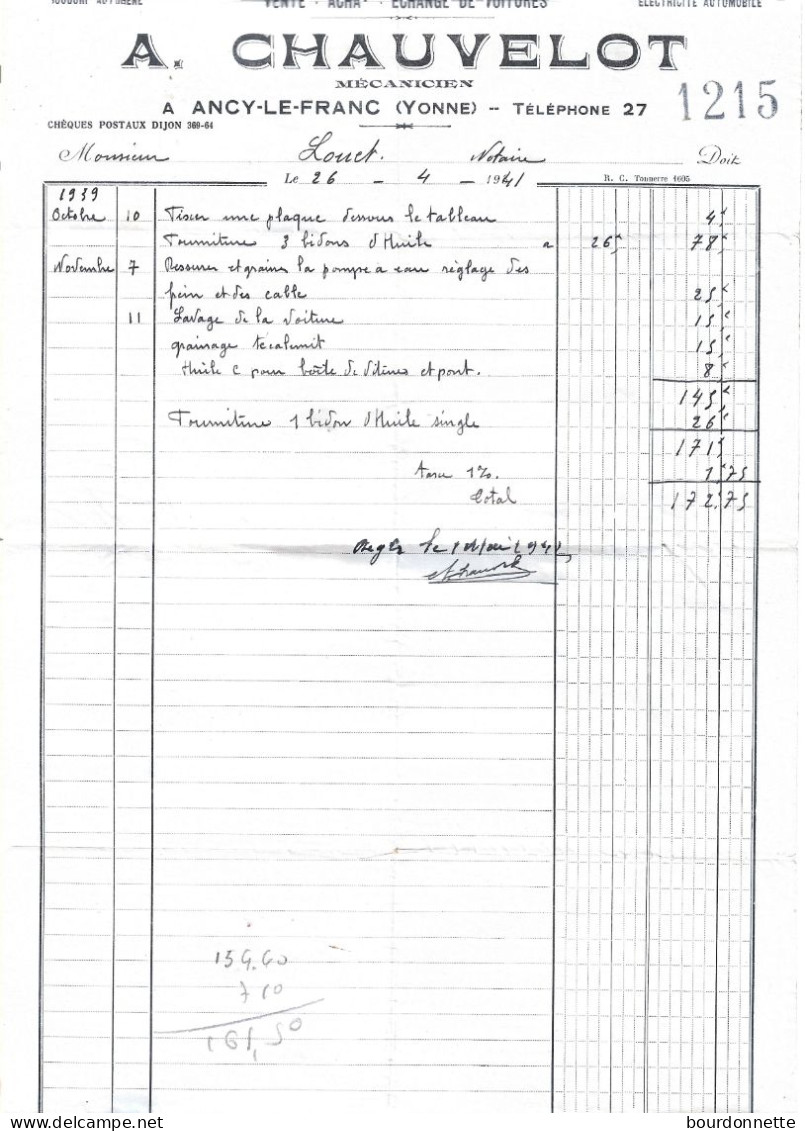 SOUDURE AUTOGÈNE VENTE - ACHAT - ÉCHANGE DE VOITURES ÉLECTRICITÉ AUTOMOBILE
A. CHAUVELOT
MÉCANICIEN
A ANCY-LE-FRANC (YONNE) -- TÉLÉPHONE 27
1215
CHÈQUES POSTAUX DIJON 369-64
Monsieur Louet. Notaire Doit
Le 26 - 4 - 1941 R. C. Tonnerre 1605
1939
Octobre 10 Fixer une plaque dessous le tableau 4
Fourniture 3 bidons d'Huile a 26 78
Novembre 7 Resserer et grainer la pompe a eau règlage des
frein et des cable 25
11 Lavage de la voiture 15
grainage tecalemit 15
Huile C pour boîte de vitesses et pont. 8
145
Fourniture 1 bidon d'Huile single 26
171
taxe 1%. 1,75
Total 172.75
Réglé le 1 Mai 1941
154.40
7 10
161,50
bourdonnette